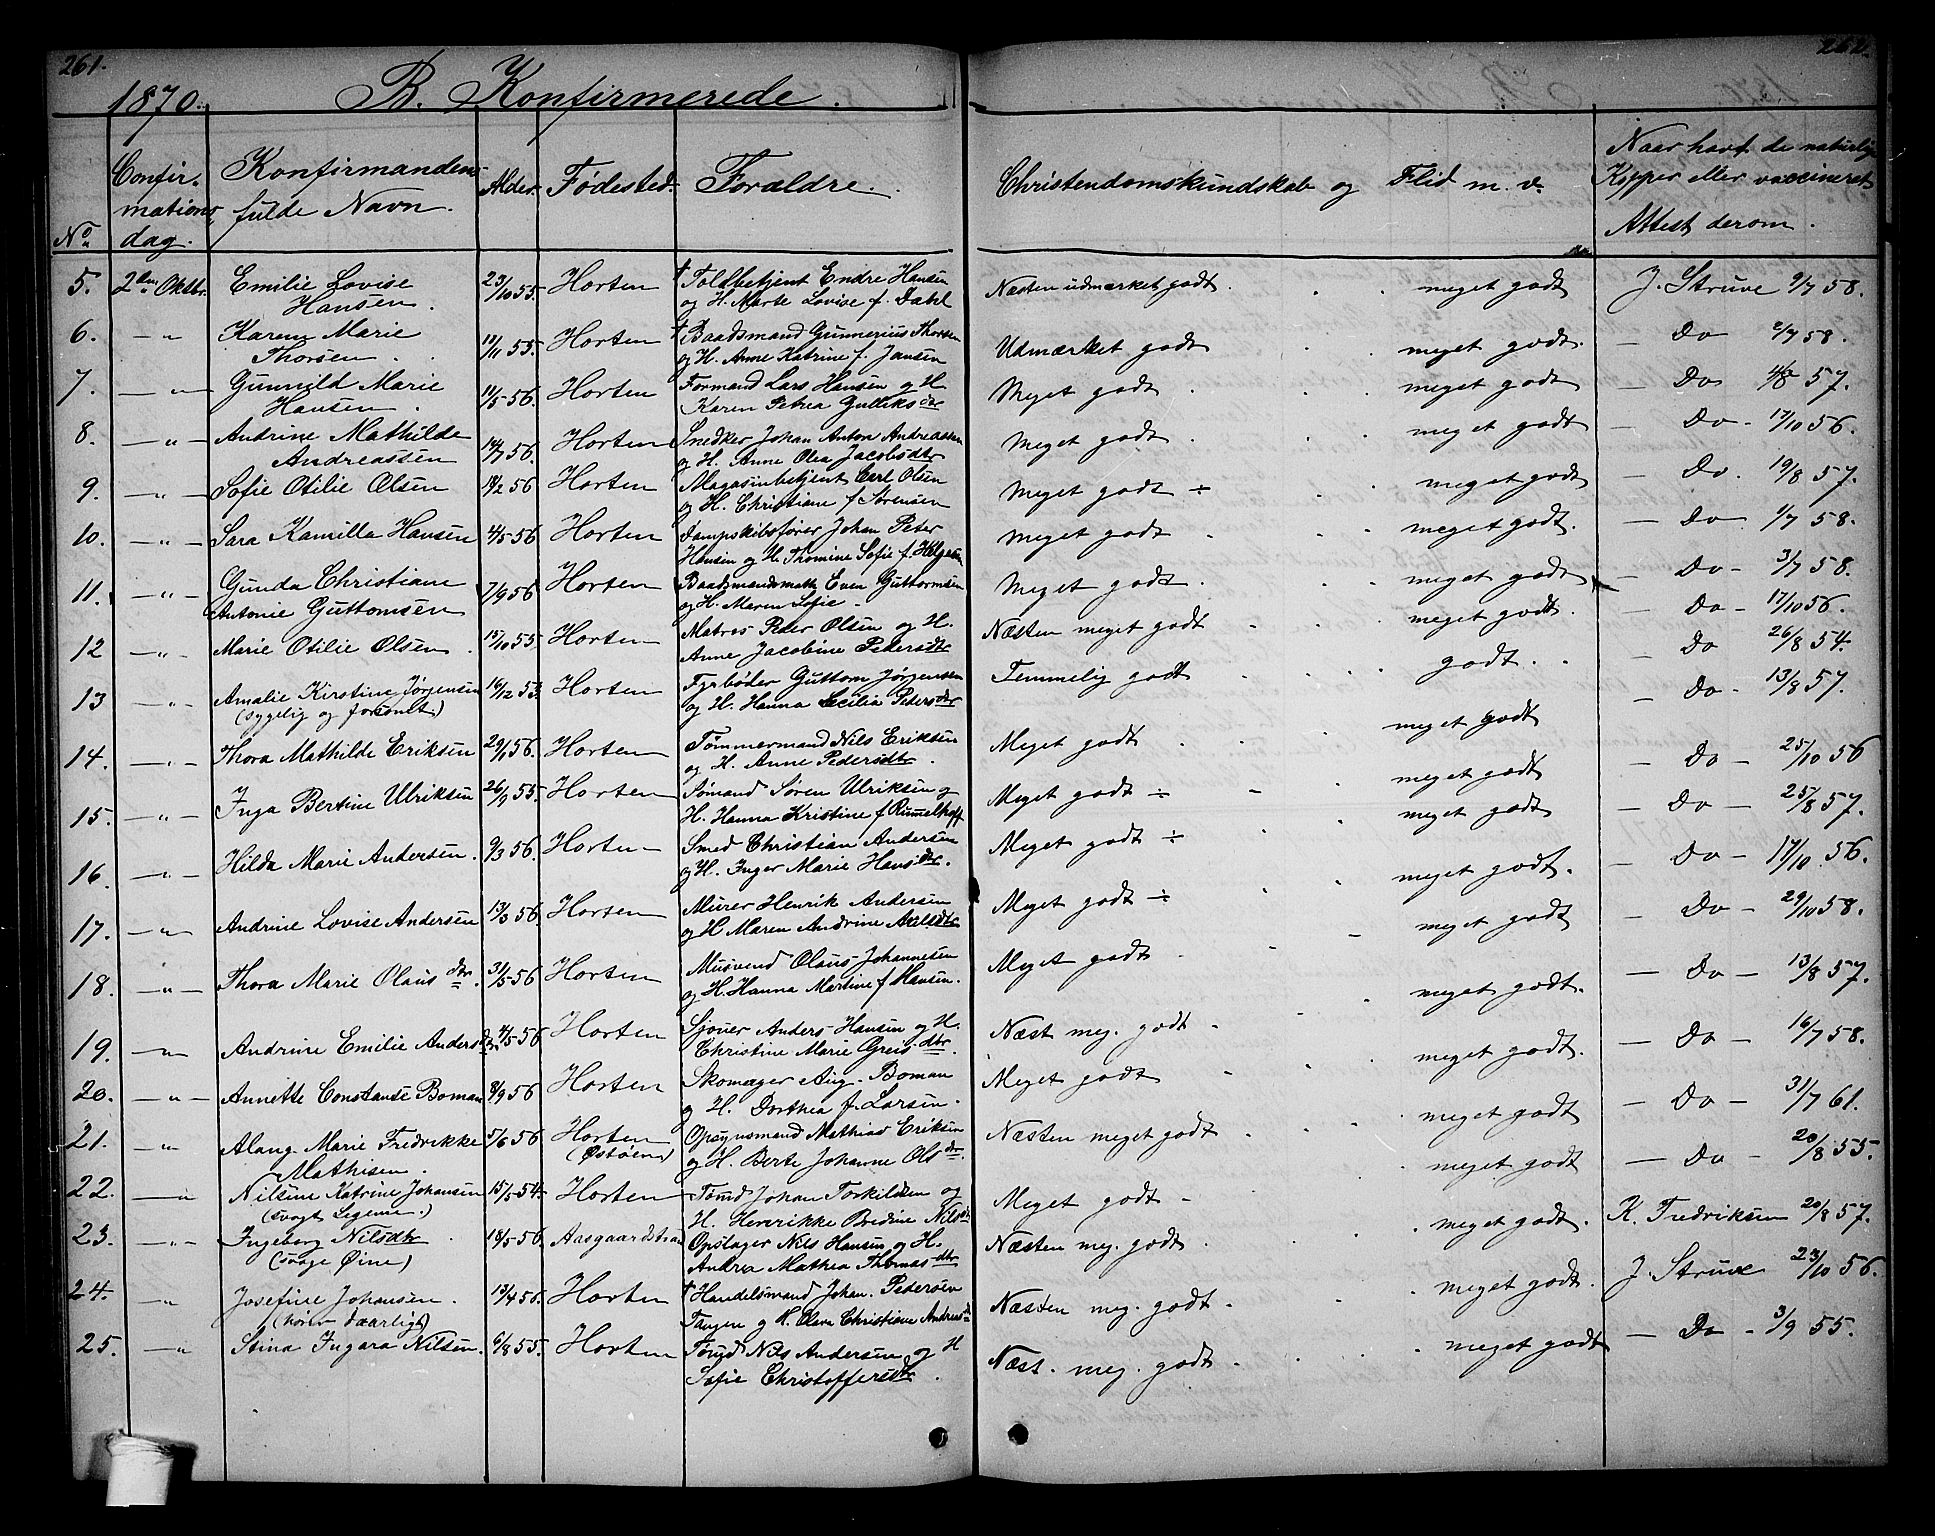 261.
262.
1870.
B. Konfirmerede.
No.
Confir-
mations
dag.
Konfirmandens
fulde Navn.
Alder.
Fødested.
Forældre.
Christendomskundskab og Flid m. v.
Naar havt de naturlige
Kopper eller vaccineret
Attest derom.
5. 2den Oktbr. Emilie Lovise Hansen. 23/10 55. Horten † Toldbetjent Endre Hansen og H. Marte Lovise f. Dahl Næsten udmærket godt. meget godt J. Struve 9/7 58.
6. — " Karen Marie Thorsen. 11/11 55. Horten † Baadsmand Gunnerius Thorsen og H. Anne Katrine f. Jansen Udmærket godt meget godt. — Do 2/7 58.
7. — " — Gunnild Marie Hansen. 11/5 56. Horten Formand Lars Hansen og H. Karen Petrea Gulliksdtr Meget godt meget godt — Do 57.
8. — " — Andrine Mathilde Andreassen 14/7 56. Horten Snedker Johan Anton Andreassen og H. Anne Olea Jacobsdtr Meget godt meget godt — Do - 17/10 56.
9. — " — Sofie Otilie Olsen 18/2 56 Horten Magasinbetjent Carl Olsen og H. Christiane f. Sørensen Meget godt ÷ meget godt — Do. 19/8 57.
10. — " — Sara Kamilla Hansen 4/5 56 Horten Dampskibsfører Johan Peter Hansen og H. Thomine Sofie f. Helgesen Meget godt meget godt. — Do 1/7 58.
11. — " — Gunda Christiane Antonie Guttomsen 7/9 56 Horten Baadsmandsmath Even Guttormsen og H. Maren Sofie - Meget godt. meget godt — Do - 3/7 58.
12 — " — Marie Otilie Olsen. 15/10 55. Horten Matros Peder Olsen og H. Anne Jacobine Pedersdtr Næsten meget godt meget godt. — Do - 17/10 56.
13 — " — Amalie Kirstine Jørgensen (sygelig og forsømt) 16/12 53. Horten Fyrbøder Guttom Jørgensen og H. Hanna Cecilia Pedersdtr Temmelig godt godt. — Do 26/8 54.
14. — " — Thora Mathilde Eriksen 29/1 56. Horten Tømmermand Nils Eriksen og H. Anne Pedersdtr. Meget godt meget godt — Do - 13/8 57.
15. — " — Inga Bertine Ulriksen 26/9 55. Horten Sømand Søren Ulriksen og H. Hanna Kristine f. Rummelhoff. Meget godt ÷ meget godt — Do — 25/10 56
16. — " — Hilda Marie Andersen. 9/3 56. Horten Smed Christian Andersen og H. Inger Marie Hansdtr. Meget godt ÷ meget godt — Do — 25/8 57.
17. — " — Andrine Lovise Andersen 13/3 56. Horten Murer Henrik Andersen og H Maren Andrine Axelsdtr Meget godt ÷ meget godt. — Do — 17/10 56.
18. — " — Thora Marie Olausdtr. 31/5 56 Horten Musvend Olaus Johannesen og H. Hanna Martine f Hansen. Meget godt meget godt — Do — 29/10 58.
19. — " Andrine Emilie Andersdtr. 4/5 56 Horten Sjouer Anders Hansen og H. Christine Marie Greisdtr. Næst meg. godt meget godt. — Do — 13/8 57.
20. — " — Annette Constanse Boman 8/9 56 Horten Skomager Aug. Boman og H. Dorthea f. Larsen. Meget godt meget godt. — Do — 16/7 58.
21. — " Alaug Marie Fredrikke Mathisen. 5/6 56 Horten (Østøen) Opsynsmand Mathias Eriksen og H. Berte Johanne Olsdtr. Næsten meget godt meget godt — Do — 31/7 61.
22. — " Nilsine Katrine Johansen (svagt Legeme.) 15/5 54. Horten Tømd Johan Torkildsen og H. Henrikke Bredine Nilsdtr Meget godt meget godt — Do — 20/8 55.
23. — " — Ingeborg Nilsdtr (svage Øine) 18/5 56. Aasgaardstrand Opslager Nils Hansen og H. Andrea Mathea Thomasdtr Næsten meg. godt meget godt. K. Fredriksen 20/8 57.
24. — " Josefine Johansen. (hører daarligt) 13/4 56. Horten † Handelsmand Johan Pedersen Tangen og H. Olava Christiane Andreasdtr Næsten meg. godt meget godt. J. Struve 23/10 56.
25. — " Stina Ingara Nilsen. 6/8 55. Horten Tømd Nils Andersen og H Sofie Christoffersdtr. Næst. meg. godt meget godt — Do — 3/9 55.